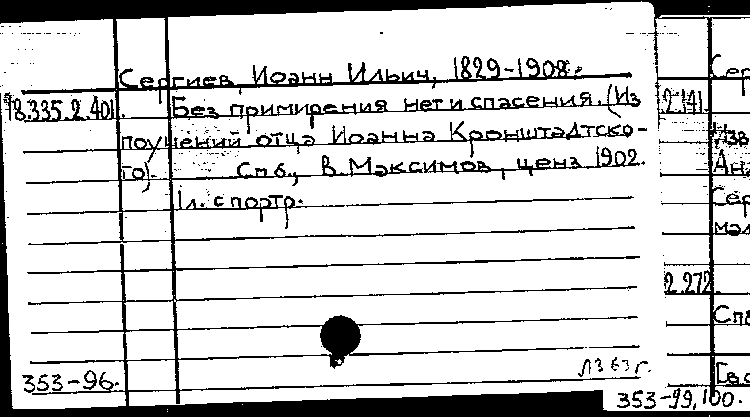 Сергиев, Иоанн Ильич, 1829-1908.
18.335.2.401. Без примирения нет и спасения. (Из
поучений отца Иоанна Кронштадтско-
го). Спб., В. Максимов, ценз 1902.
1 л. с портр.
353-96.
Л363г.
Сер
2.141.
Изв
Ан
Сер
мал
2.272
Спб
353-99,100.